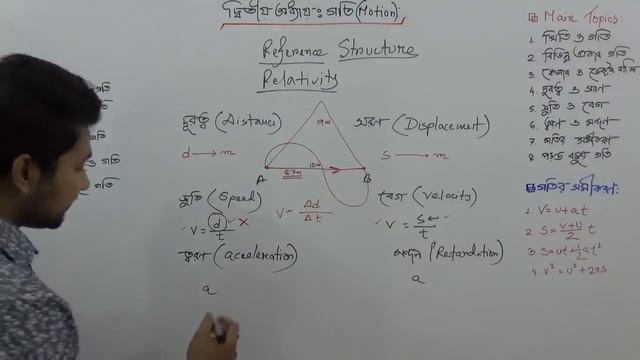 দ্বিতীয় অধ্যায়ঃ গতি (Motion)
Reference Structure
Relativity
দূরত্ব (Distance)
d → m
সরণ (Displacement)
s → m
19m
10m
A
B
দ্রুতি (Speed)
v = d/t
v = Δd/Δt
বেগ (Velocity)
v = s/t
ত্বরণ (acceleration)
a
মন্দন (Retardation)
a
Main Topics:
1. স্থিতি ও গতি
2. বিভিন্ন প্রকার গতি
3. স্কেলার ও ভেক্টর রাশি
4. দূরত্ব ও সরণ
5. দ্রুতি ও বেগ
6. ত্বরণ ও মন্দন
7. গতির সমীকরণ
8. পড়ন্ত বস্তুর গতি
গতির সমীকরণ:
1. v = u + at
2. s = (v+u)/2 t
3. s = ut + ½at²
4. v² = u² + 2as